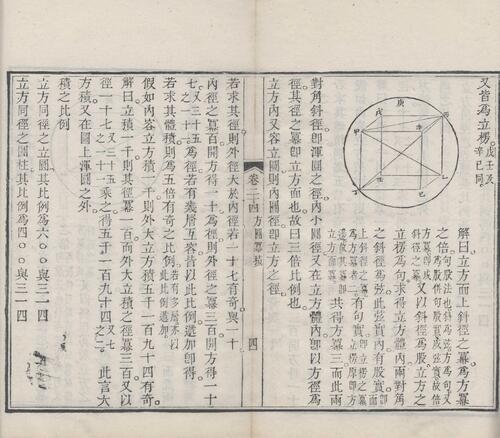 又皆為立楞戊壬及
辛己同
庚
甲
解曰立方面上斜徑之冪為方冪
之倍句股法也斜為弦方為句又
為股併句股實成弦實故倍
方冪即成
斜徑之冪又以斜徑為股立方之
立楞為句求得立方體內兩對角
之斜徑為弦此弦實內有股實即面
上斜徑之冪
為方冪者二有句實即立楞之冪
立楞原即立方面
故其冪即方冪共得方冪三而此兩
對角斜徑即渾圓之徑內小圓徑又在立方體內即以方徑為
徑其徑之冪即立方面也故曰三倍比例也
立方內又容立圓則內圓徑即立方之徑
卷二十四 方圓冪積 四
若求其徑則外徑大於內徑若一十七有奇與一十
內徑之冪百開方得一十為徑則外徑之冪三百開方得一十
七又三十五之一十一為徑若有幾層互容皆以此比例遞加即得
若求其體積則為五倍有奇之比例若有多層亦以
此比例遞加
假如內容立方積一千則外大立方積五千一百九十四有奇
解曰立積一千則其徑冪一百而外大立積之徑冪三百又以
徑一十七又三十五之一十一乘之得五千一百九十四又七之二 此言大
方積又在圓上渾圓之外
積之比例
立方同徑之立圓其比例為六〇〇與三一四
立方同徑之圓柱其比例為四〇〇與三一四